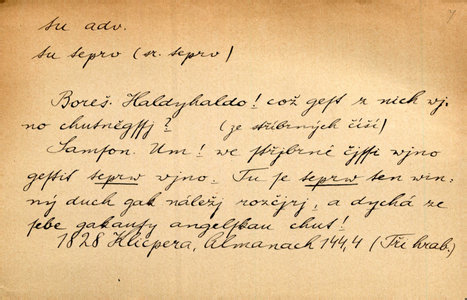 tu adv.
tu teprv (sr. teprv)
Boreš. Haldyhaldo! což gest z nich wj-
no chutněgssj? (ze stříbrných číší)
Samson. Um! we střjbrné čjssi wjno
gestiť teprw wjno. Tu je teprw ten win-
ný duch gak náležj rozegrj, a dychá ze
sebe gakausy angelskau chuť!
1828 Klicpera, Almanach 144,4 (Tři hrab.)